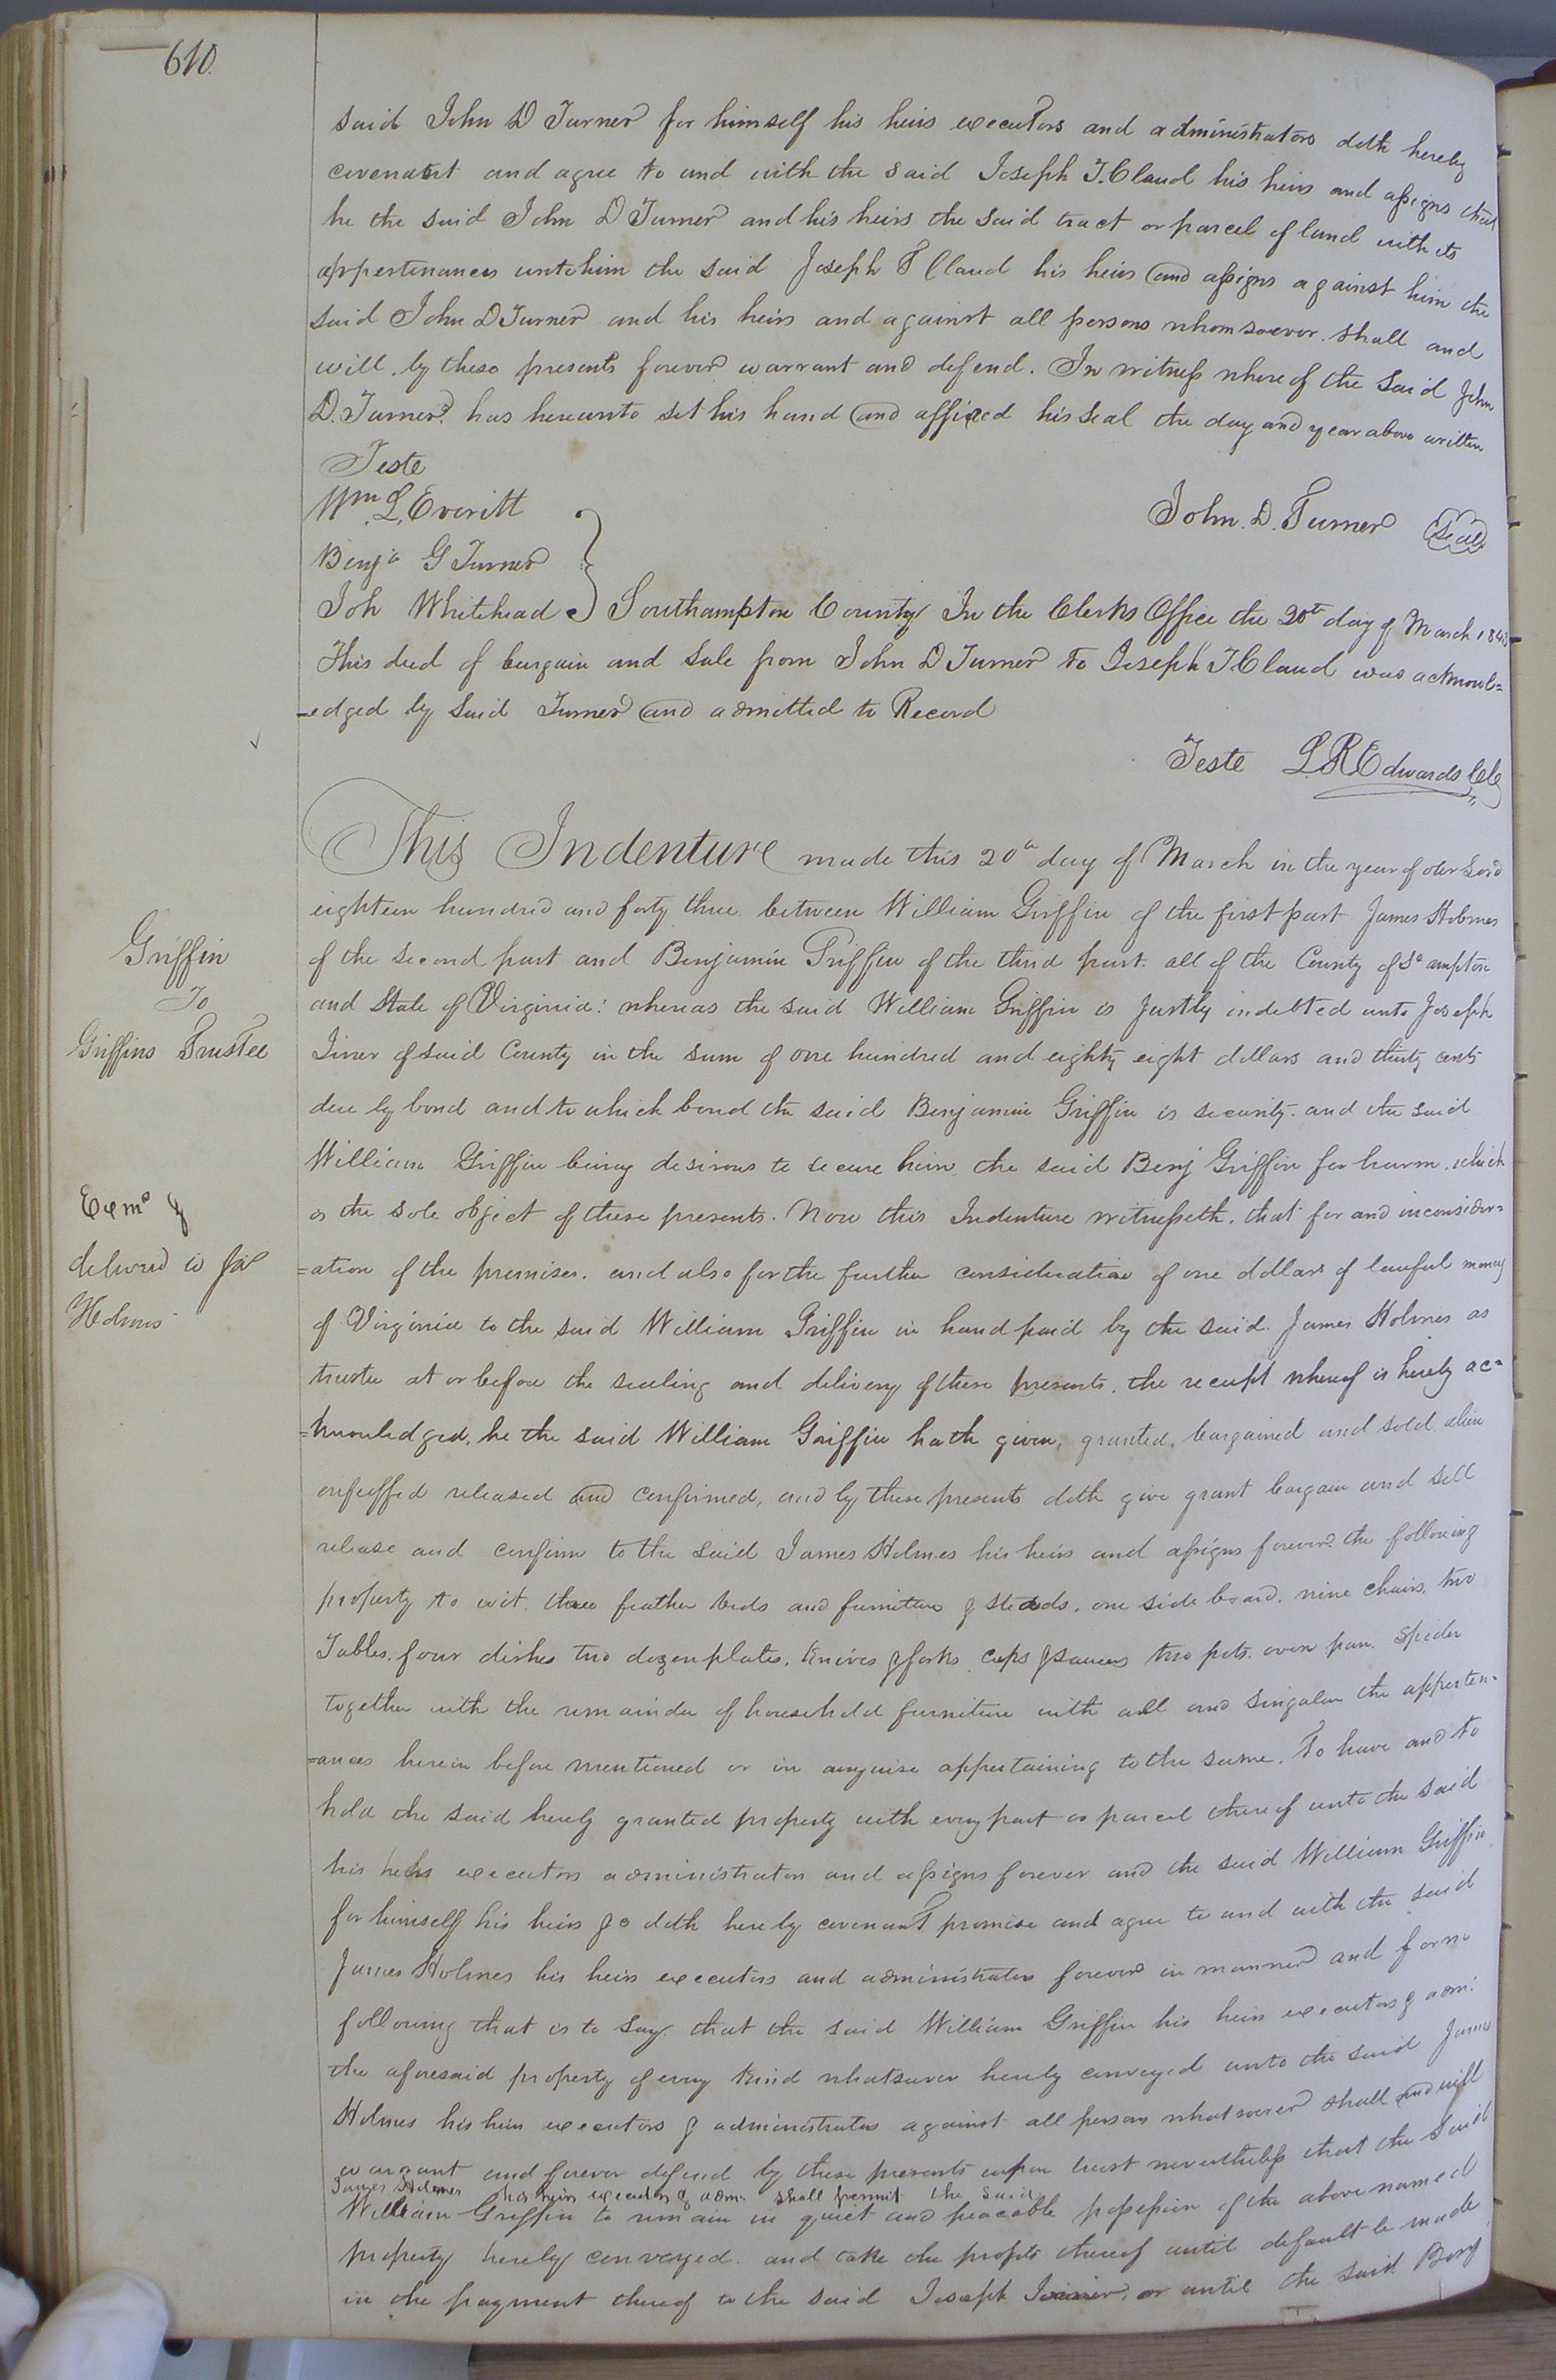 610.
said John D Turner for himself his heirs executors and administrators doth hereby
covenant and agree to and with the said Joseph T. Claud his heirs and assigns that
he the said John D Turner and his heirs the said tract or parcel of land with its
appertenances unto him the said Joseph T Claud his heirs and assigns against him the
said John D Turner and his heirs and against all persons whomsoever. shall and
will. by these presents forever warrant and defend. In witness whereof the said John
D. Turner. has hereunto set his hand and affixed his seal the day and year above written
Teste
Wm. L. Everitt
John. D. Turner Seal
Benja G Turner
Joh Whitehead
Southampton County In the Clerks Office the 20th day of March 1843
This deed of bargain and sale from John D Turner to Joseph T Claud was acknowl=
=edged by said Turner and admitted to Record
Teste L. R. Edwards
This Indenture made this 20th day of March in the year of our Lord
eighteen hundred and forty three between William Griffin of the first part James Holmes
Griffin
To
Griffins Trustee
of the second part and Benjamin Griffin of the third part. all of the County of So ampton
and State of Virginia: whereas the said William Griffin is justly indebted unto Joseph
Joiner of said County in the sum of one hundred and eighty eight dollars and thirty cents
due by bond and to which bond the said Benjamin Griffin is security. and the said
William Griffin being desirous to secure him the said Benj Griffin for harm. which
Exmd &
delivered to Jas
Holmes
is the sole object of these presents. Now this Indenture witnesseth. that for and in consider=
=ation of the premises. and also for the further consideration of one dollar of lawful money
of Virginia to the said William Griffin in hand paid by the said. James Holmes as
trustee at or before the sealing and delivery of these presents. the receipt whereof is hereby ac=
=knowledged, he the said William Griffin hath given, granted, bargained and sold alien
enfeoffed released and confirmed, and by these presents doth give grant bargain and sell
release and confirm to the said James Holmes his heirs and assigns forever. the following
property to wit. three feather beds and furniture & steads. one side board. nine chairs. two
Tables. four dishes two dozen plates. knives & forks. cups & saucers two pots. oven pan. Spider
together with the remainder of household furniture with all and singular the apperten=
=ances herein before mentioned or in anywise appertaining to the same. To have and to
hold the said hereby granted property with every part or parcel thereof unto the said
his heirs executors administrators and assigns forever and the said William Griffin
for himself his heirs &c doth hereby covenant promise and agree to and with the said
James Holmes his heirs executors and administrators forever in manner and form
following that is to say. that the said William Griffin his heirs executors & adm:
the aforesaid property of every kind whatsoever hereby conveyed unto the said James
Holmes his heirs executors & administrators against all persons whatsoever shall and will
warrant and forever defend by these presents upon trust nevertheless that the said
James Holmes his heirs executors & adm: shall permit the said
William Griffin to remain in quiet and peaceable possession of the above named
property hereby conveyed. and take the profits thereof until default be made
in the payment thereof to the said Joseph Joiner, or until the said Benj